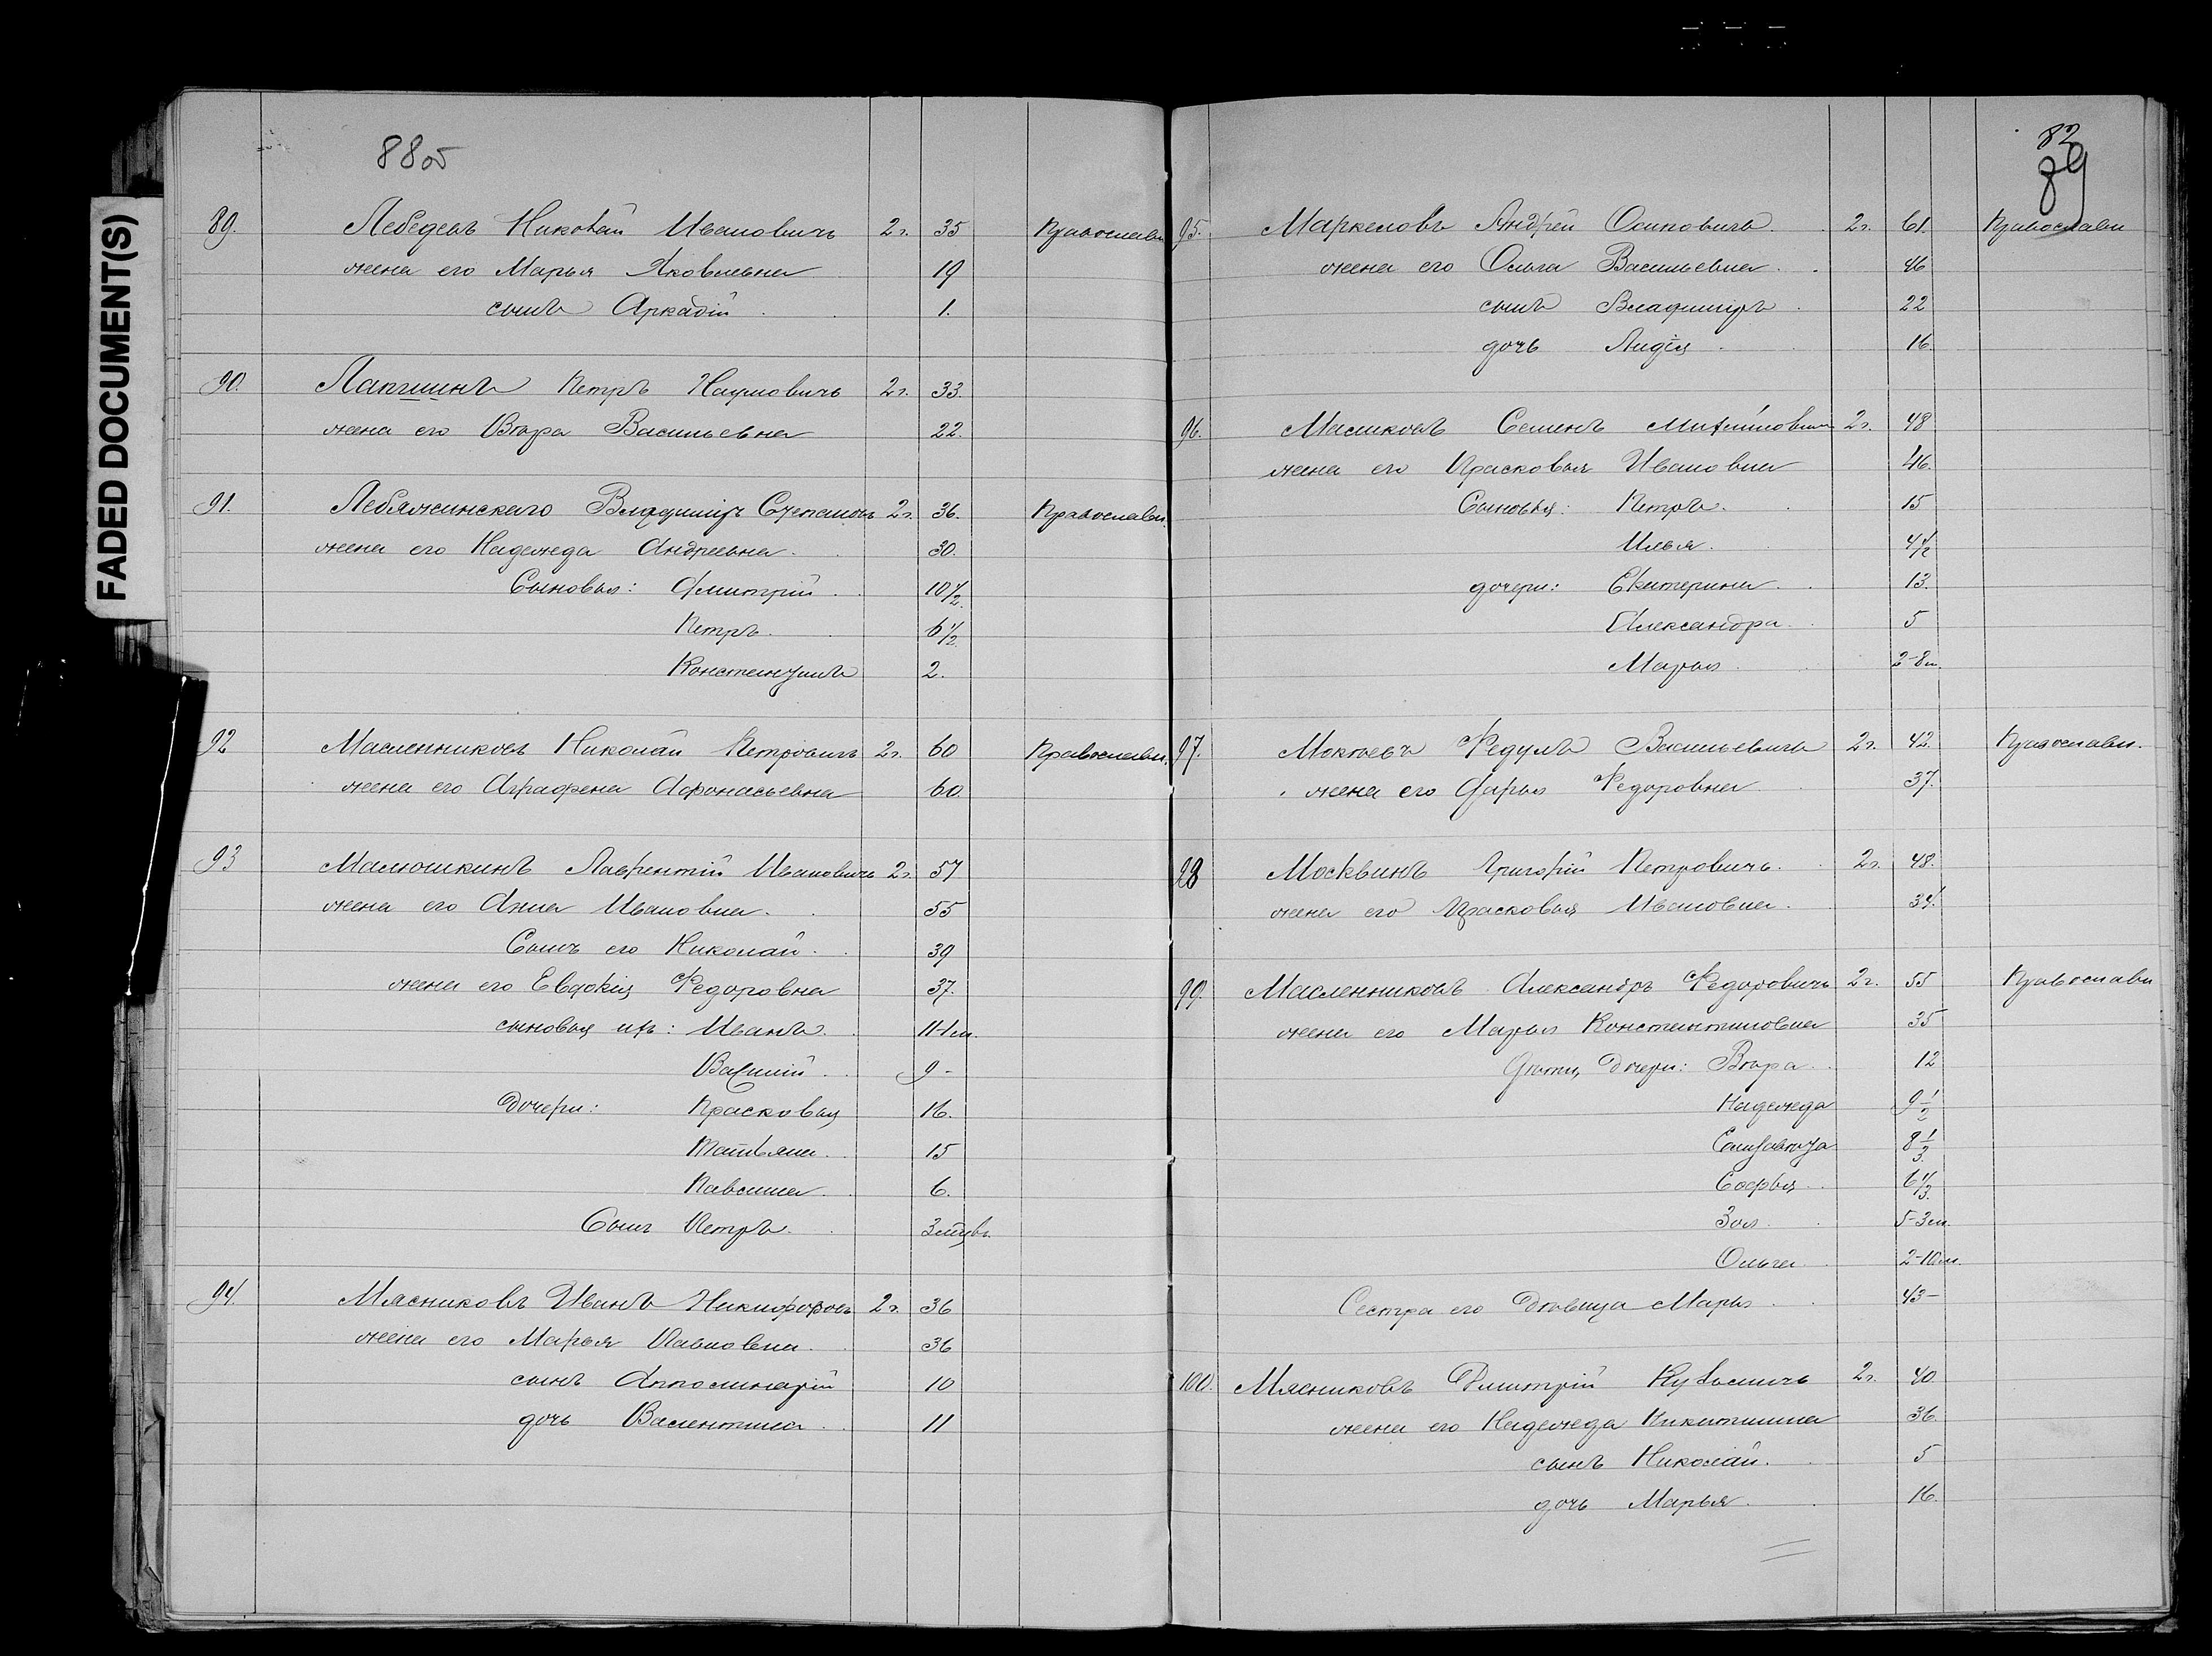 FADED DOCUMENT(S)
88об
89. Лебедевъ Николай Ивановичъ 2г. 35 Православн
жена его Марья Яковлевна 19
сынъ Аркадій 1.
90. Лапшинъ Петръ Наумовичъ 2г. 33.
жена его Вѣра Васильевна 22.
91. Лебяжинскаго Владиміръ Степановъ 2г. 36. Православн.
жена его Надежда Андреевна 30.
Сыновья: Дмитрій 10 1/2
Петръ 6 1/2
Константинъ 2.
92 Масленниковъ Николай Петровичъ 2г. 60 Православн.
жена его Аграфена Афонасьевна 60
93 Малюшкинъ Лаврентій Ивановичъ 2г. 57
жена его Анна Ивановна 55
Сынъ его Николай 39
жена его Евдокія Федоровна 37.
сыновья ихъ: Иванъ 11-1м.
Василій 9 -
Дочери: Прасковья 16.
Татьяна 15
Павлина 6.
Сынъ Петръ
94. Мясниковъ Иванъ Никифоровъ 2г. 36
жена его Марья Павловна 36
сынъ Апполинарій 10
дочь Валентина 11
82
89
95. Маркеловъ Андрей Осиповичъ 2г. 61. Православн
жена его Ольга Васильевна 46
сынъ Владиміръ 22
дочь Лидія 16.
96. Масликовъ Семенъ 2г. 48
жена его Прасковья Ивановна 46.
Сыновья: Петръ 15
Илья 4 1/2
дочери: Екатерина 13.
Александра 5
Марья 2-8м.
97. Моктевъ Федулъ Васильевичъ 2г. 42. Православн.
жена его Дарья Федоровна 37.
98 Москвинъ Григорій Петровичъ 2г. 48.
жена его Прасковья Ивановна 34.
99. Масленниковъ Александръ Федоровичъ 2г. 55 Православн
жена его Марья Константиновна 35
Дѣти, Дочери: Вѣра 12
Надежда 9 1/2
Елизавета 8 1/3.
Софья 6 1/3.
Зоя 5-3м.
Ольга 2-10м.
Сестра его Дѣвица Марья 43 -
100. Мясниковъ Дмитрій Кузьмичъ 2г. 40
жена его Надежда Никитишна 36
сынъ Николай 5
дочь Марья 16.